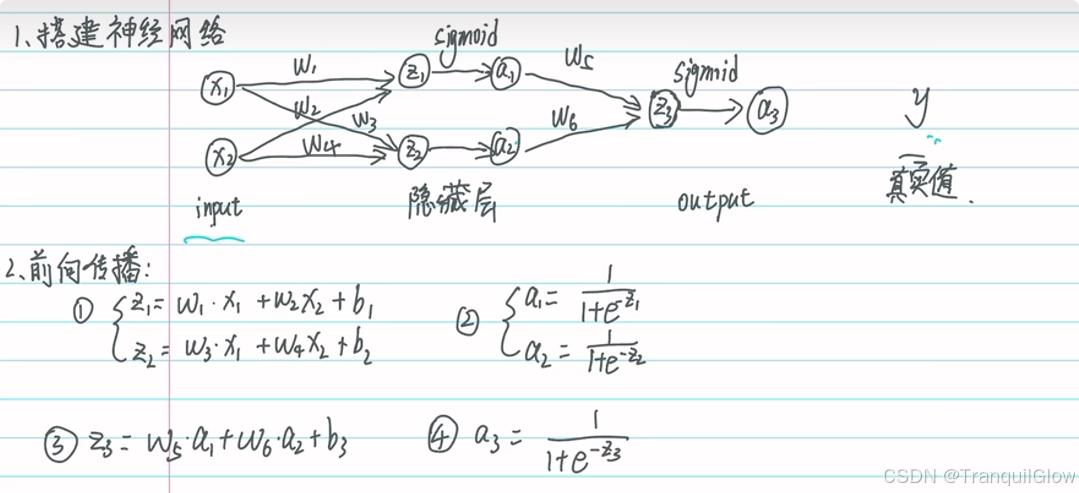 1、搭建神经网络
sigmoid
w₁ z₁ a₁ w₅ sigmoid
x₁ w₂ w₃ z₃ a₃ y
x₂ w₄ z₂ a₂ w₆
input 隐藏层 output 真实值.
2、前向传播:
① { z₁ = w₁·x₁ + w₂x₂ + b₁
z₂ = w₃·x₁ + w₄x₂ + b₂
② { a₁ = 1/(1+e^-z₁)
a₂ = 1/(1+e^-z₂)
③ z₃ = w₅·a₁ + w₆·a₂ + b₃
④ a₃ = 1/(1+e^-z₃)
CSDN @TranquilGlow